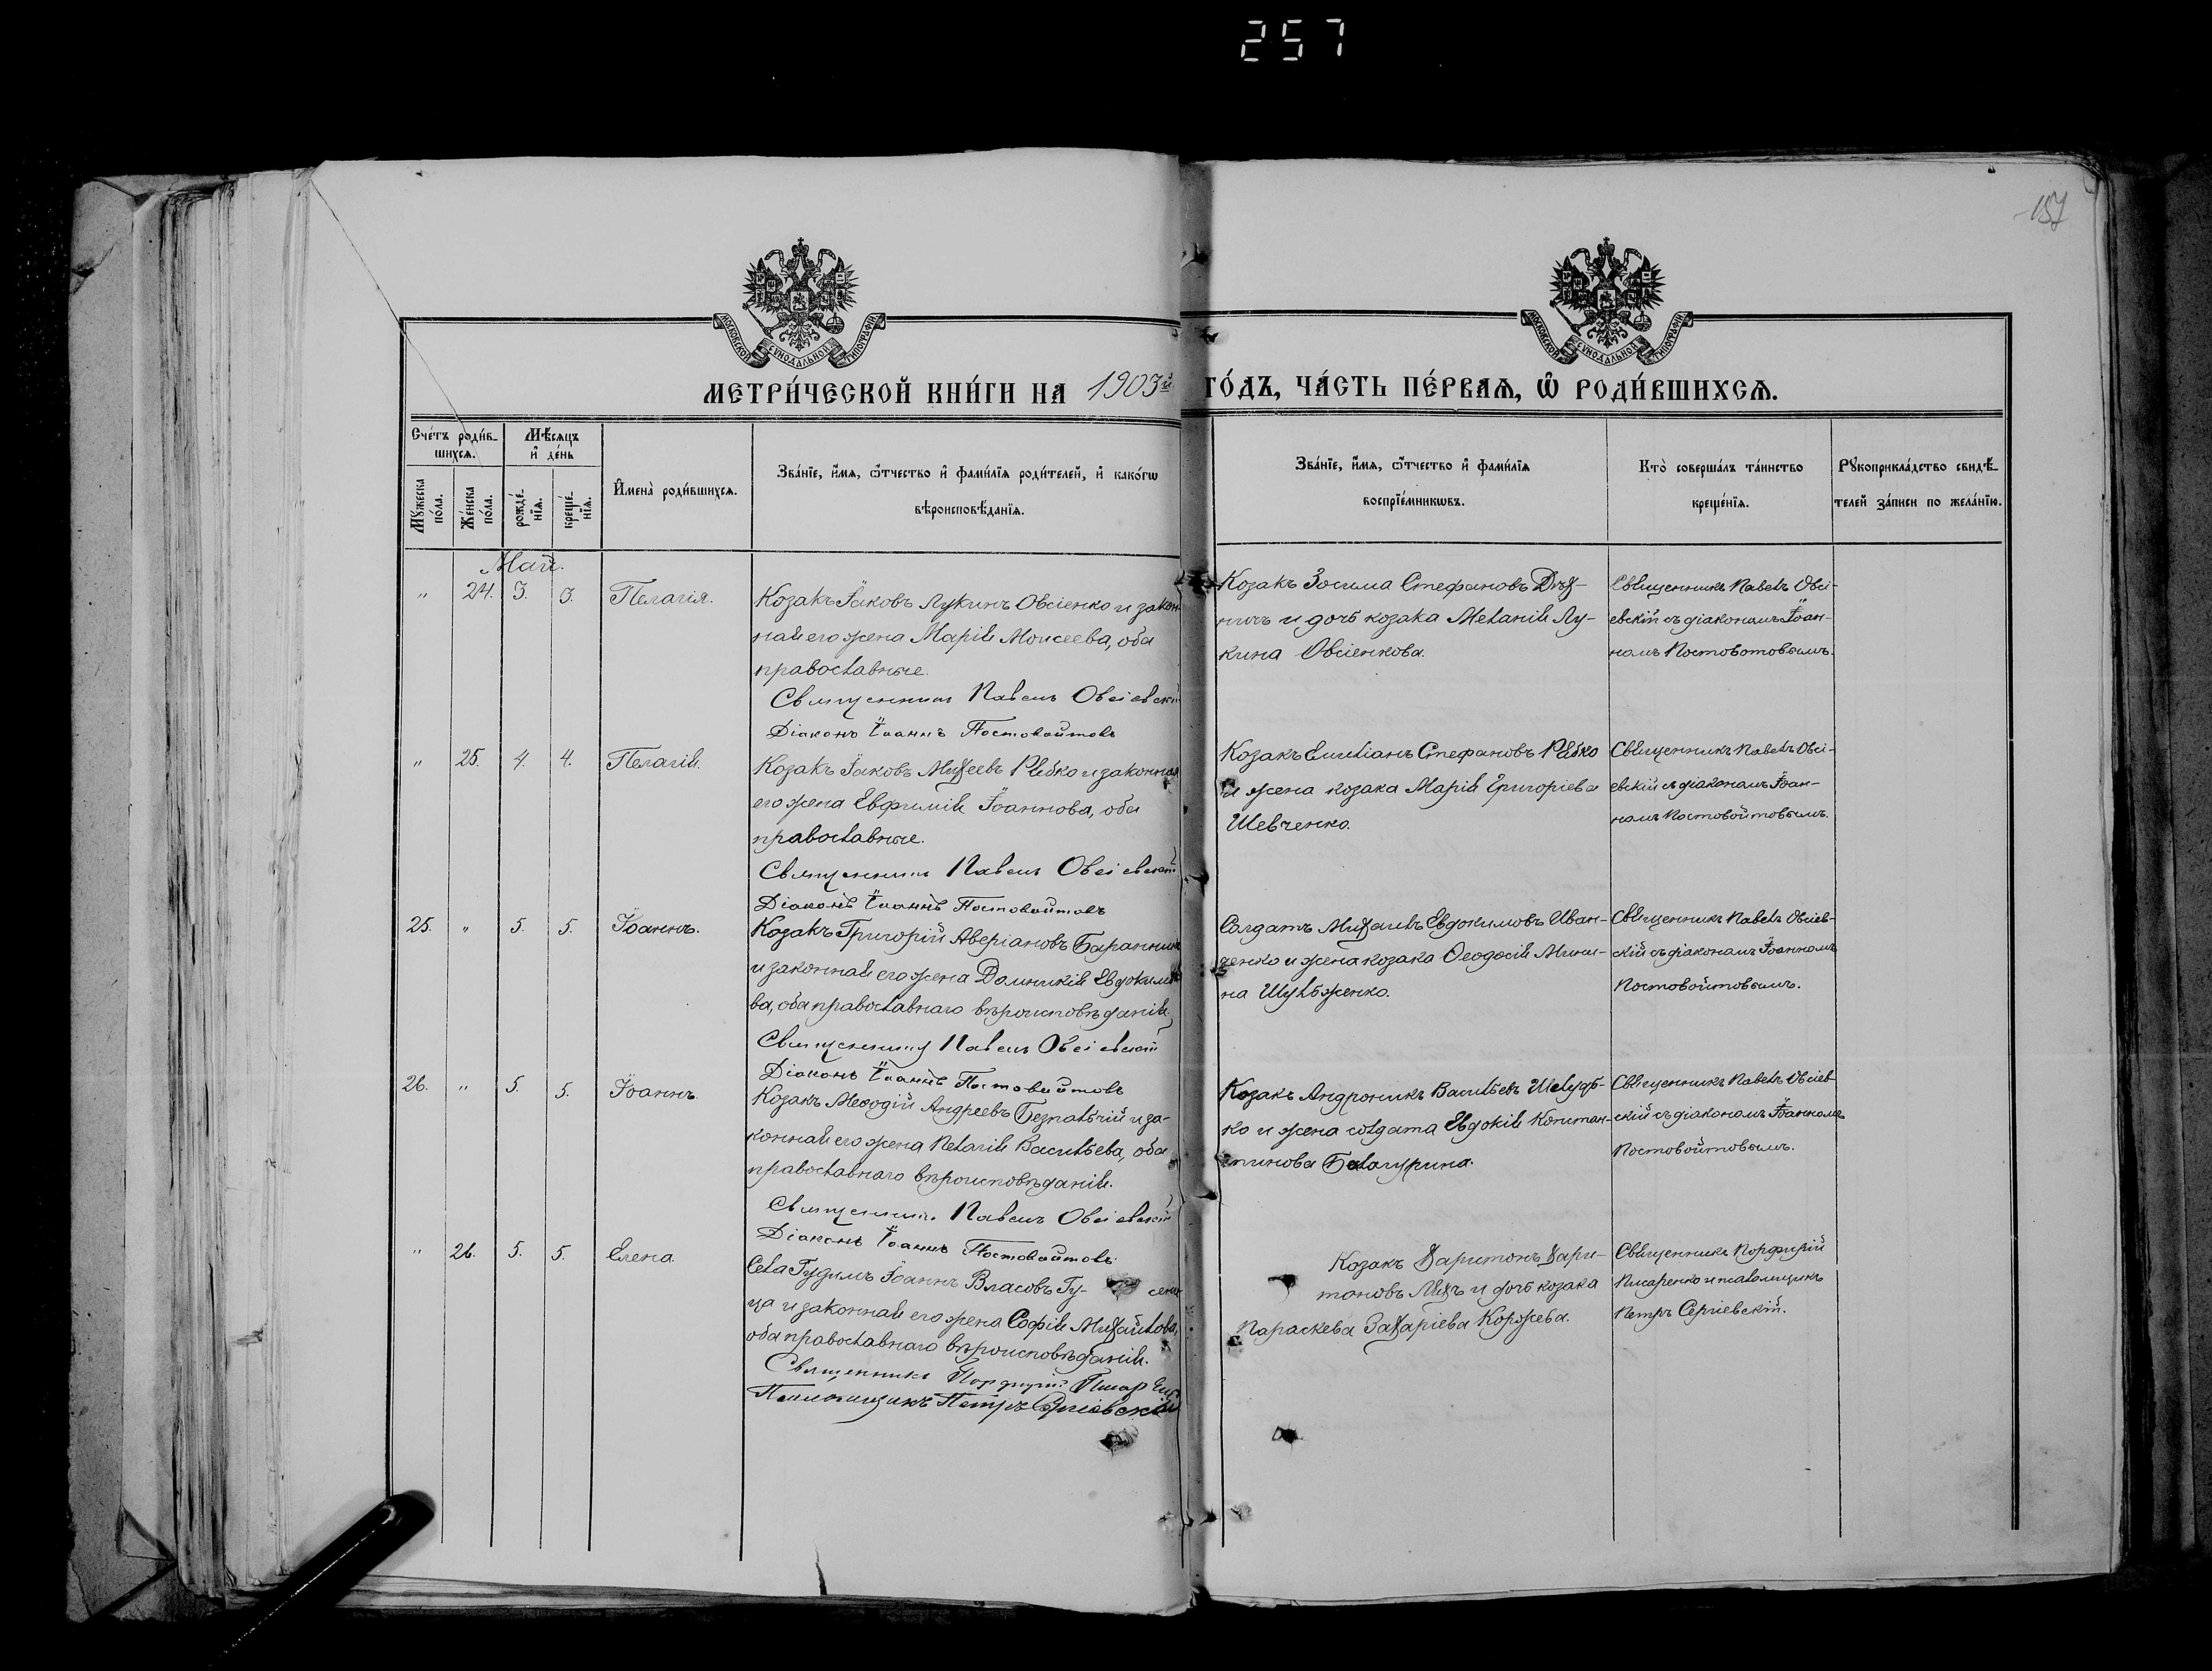 257
157
МОСКОВСКОЙ СУНОДАЛЬНОЙ ТИПОГРАФІИ
МОСКОВСКОЙ СУНОДАЛЬНОЙ ТИПОГРАФІИ
МЕТРИ́ЧЕСКОЙ КНИ́ГИ НА 1903й ГО́ДЪ, ЧА́СТЬ ПЕ́РВАѦ, Ѡ҆ РОДИ́ВШИХСѦ.
Сче́тъ роди́в-
шихсѧ.
Мѣ́сѧцъ
и҆ де́нь
Мꙋ́жеска
по́ла.
Же́нска
по́ла.
рожде́-
нїѧ.
креще́-
нїѧ.
И҆мена̀ роди́вшихсѧ.
Зва́нїе, и҆́мѧ, ѻ҆́тчество и҆ фами́лїѧ роди́телей, и҆ како́гѡ
вѣроисповѣ́данїѧ.
Зва́нїе, и҆́мѧ, ѻ҆́тчество и҆ фами́лїѧ
воспрїе́мникѡвъ.
Кто̀ соверша́лъ та́инство
креще́нїѧ.
Рꙋкоприкла́дство свидѣ́-
телей за́писи по жела́нїю.
Май.
" 24. 3. 3. Пелагія.
Козакъ Іаковъ Лукинъ Овсіенко и закон-
ная его жена Марія Моисеева, оба
православные.
Священникъ Павелъ Овсіевскій
Діаконъ Іоаннъ Постовойтовъ
Козакъ Зосима Стефановъ
и дочь козака Меланія Лу-
кина Овсіенкова.
Священникъ Павелъ Овсі-
евскій съ діакономъ Іоан-
номъ Постовотовымъ.
" 25. 4. 4. Пелагія.
Козакъ Іаковъ Михеевъ Рябко и законная
его жена Евфимія Іоаннова, оба
православные.
Священникъ Павелъ Овсіевскій
Діаконъ Іоаннъ Постовойтовъ
Козакъ Емиліанъ Стефановъ Рябко
и жена козака Марія Григоріева
Шевченко.
Священникъ Павелъ Овсі-
евскій съ діакономъ Іоан-
номъ Постовойтовымъ.
25. " 5. 5. Іоаннъ.
Козакъ Григорій Аверіановъ Баранник
и законная его жена Домникія Евдокимо-
ва, оба православнаго вѣроисповѣданія.
Священникъ Павелъ Овсіевскій
Діаконъ Іоаннъ Постовойтовъ
Солдатъ Михаилъ Евдокимовъ Иван-
ченко и жена козака Ѳеодосія Мини-
на Шульженко.
Священникъ Павелъ Овсіев-
скій съ діакономъ Іоанномъ
Постовойтовымъ.
26. " 5. 5. Іоаннъ.
Козакъ Меѳодій Андреевъ Безпалчій и за-
конная его жена Пелагія Васильева, оба
православнаго вѣроисповѣданія.
Священникъ Павелъ Овсіевскій
Діаконъ Іоаннъ Постовойтовъ
Козакъ Андроникъ Васильевъ Шелудь-
ко и жена солдата Евдокія Констан-
тинова Балагурина.
Священникъ Павелъ Овсіев-
скій съ діакономъ Іоанномъ
Постовойтовымъ.
" 26. 5. 5. Елена.
Села Гудимъ Іоаннъ Власовъ Гу- сени
ца и законная его жена Софія Михайлова,
оба православнаго вѣроисповѣданія.
Священникъ Порфирій Писаренко
Псаломщикъ Петръ Сергіевскій
Козакъ Харитонъ Хари-
тоновъ Лихъ и дочь козака
Параскева Захаріева Коржева.
Священникъ Порфирій
Писаренко и псаломщикъ
Петръ Сергіевскій.